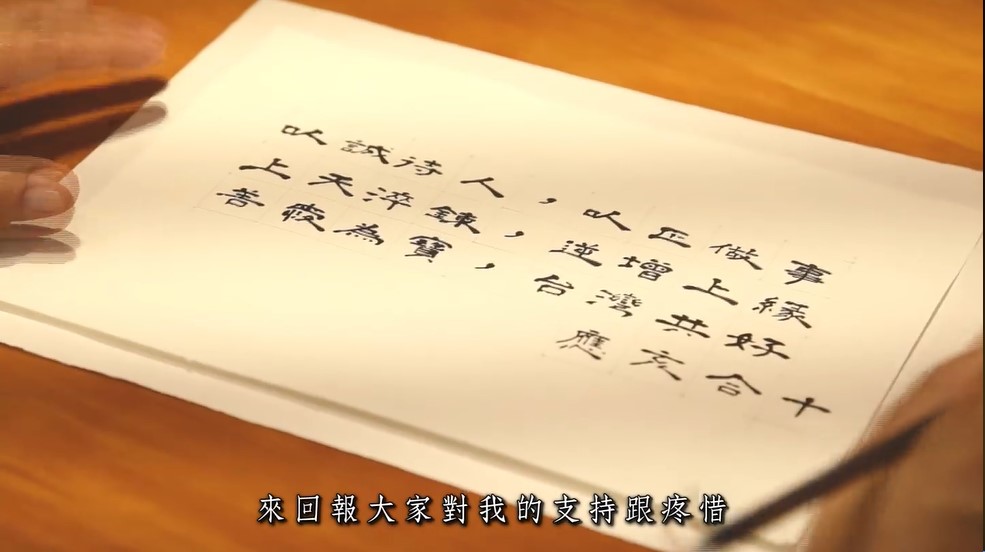 以誠待人，以正做事
上天淬鍊，逆增上緣
善發為寶，台灣共好
應亥合十
來回報大家對我的支持跟疼惜